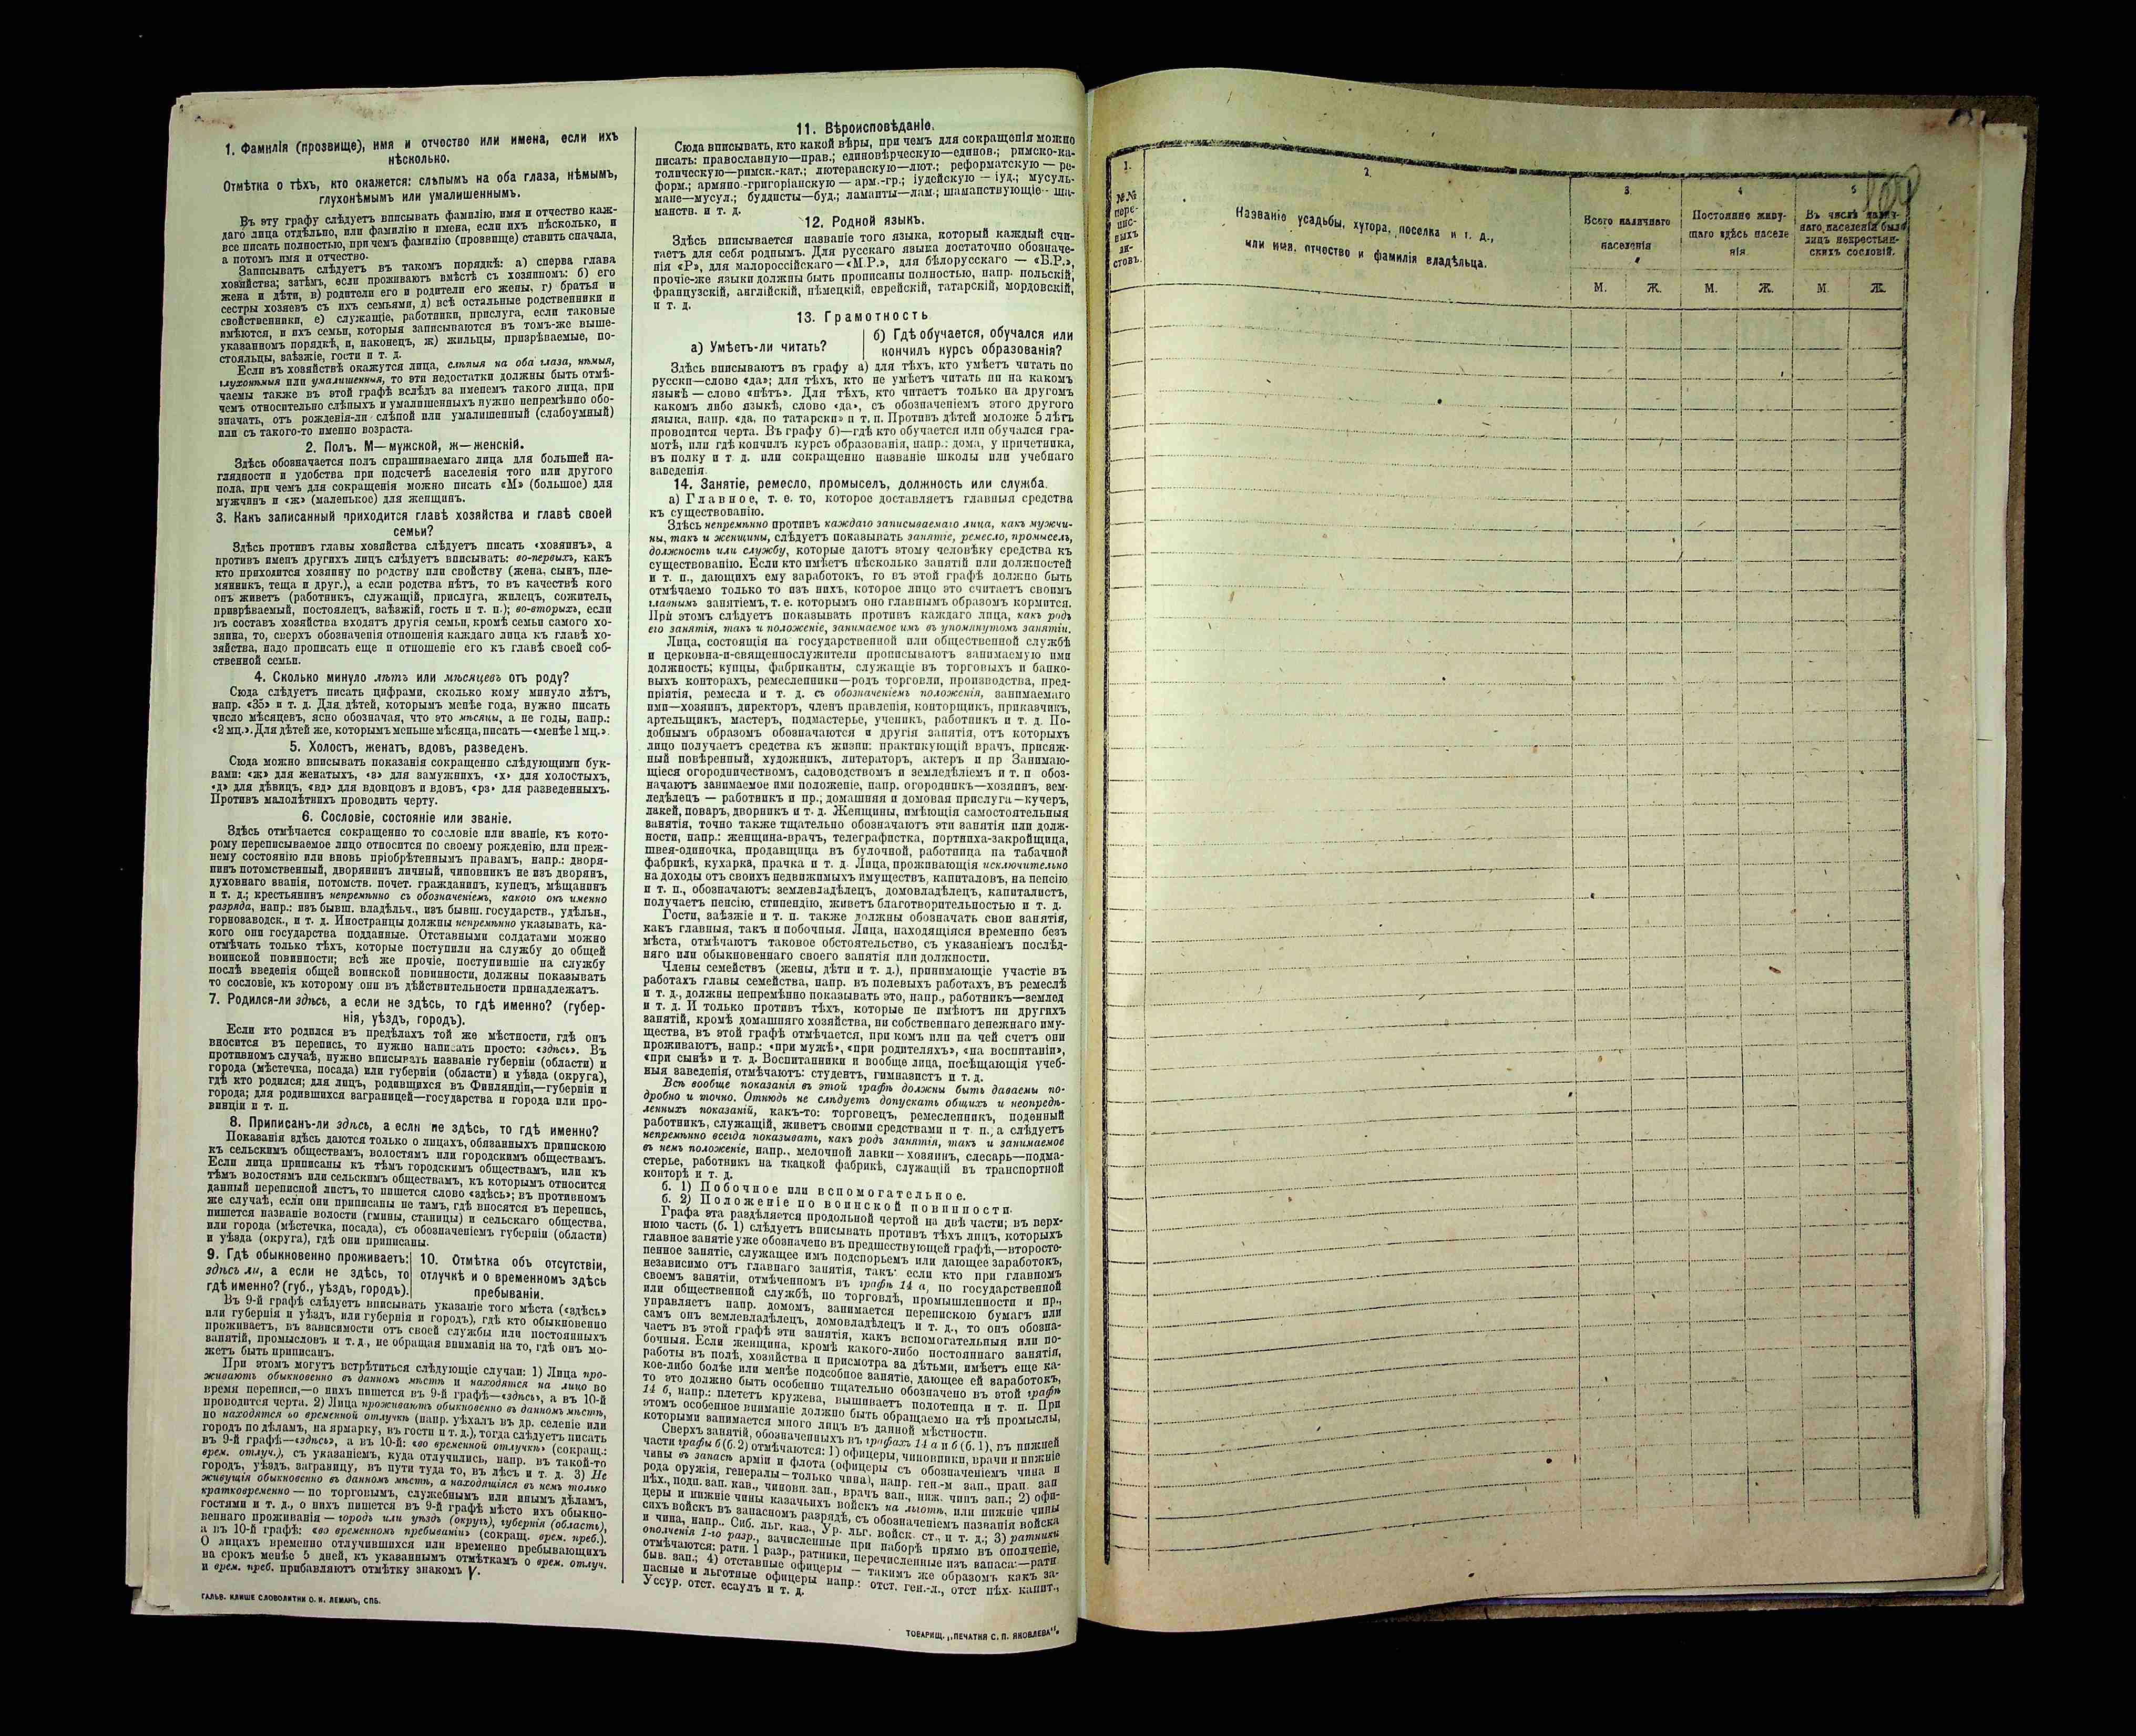 1. Фамилія (прозвище), имя и отчоство или имена, если ихъ
нѣсколько.
Отмѣтка о тѣхъ, кто окажется: слѣпымъ на оба глаза, нѣмымъ,
глухонѣмымъ или умалишеннымъ.
Въ эту графу слѣдуетъ вписывать фамилію, имя и отчество каж-
даго лица отдѣльно, или фамилію и имена, если ихъ нѣсколько, и
все писать полностью, при чемъ фамилію (прозвище) ставить сначала,
а потомъ имя и отчество.
Записывать слѣдуетъ въ такомъ порядкѣ: а) сперва глава
хозяйства; затѣмъ, если проживаютъ вмѣстѣ съ хозяиномъ: б) его
жена и дѣти, в) родители его и родители его жены, г) братья и
сестры хозяевъ съ ихъ семьями, д) всѣ остальные родственники и
свойственники, е) служащіе, работники, прислуга, если таковые
имѣются, и ихъ семьи, которыя записываются въ томъ-же выше-
указанномъ порядкѣ, и, наконецъ, ж) жильцы, призрѣваемые, по-
стояльцы, заѣзжіе, гости и т. д.
Если въ хозяйствѣ окажутся лица, слѣпыя на оба глаза, нѣмыя,
глухонѣмыя или умалишенныя, то эти недостатки должны быть отмѣ-
чаемы также въ этой графѣ вслѣдъ за именемъ такого лица, при
чемъ относительно слѣпыхъ и умалишенныхъ нужно непремѣнно обо-
значать, отъ рожденія-ли слѣпой или умалишенный (слабоумный)
или съ такого-то именно возраста.
2. Полъ. М—мужской, ж—женскій.
Здѣсь обозначается полъ спрашиваемаго лица для большей на-
глядности и удобства при подсчетѣ населенія того или другого
пола, при чемъ для сокращенія можно писать «М» (большое) для
мужчинъ и «ж» (маленькое) для женщинъ.
3. Какъ записанный приходится главѣ хозяйства и главѣ своей
семьи?
Здѣсь противъ главы хозяйства слѣдуетъ писать «хозяинъ», а
противъ именъ другихъ лицъ слѣдуетъ вписывать: во-первыхъ, какъ
кто приходится хозяину по родству или свойству (жена, сынъ, пле-
мянникъ, теща и друг.), а если родства нѣтъ, то въ качествѣ кого
онъ живетъ (работникъ, служащій, прислуга, жилецъ, сожитель,
призрѣваемый, постоялецъ, заѣзжій, гость и т. п.); во-вторыхъ, если
въ составъ хозяйства входятъ другія семьи, кромѣ семьи самого хо-
зяина, то, сверхъ обозначенія отношенія каждаго лица къ главѣ хо-
зяйства, надо прописать еще и отношеніе его къ главѣ своей соб-
ственной семьи.
4. Сколько минуло лѣтъ или мѣсяцевъ отъ роду?
Сюда слѣдуетъ писать цифрами, сколько кому минуло лѣтъ,
напр. «35» и т. д. Для дѣтей, которымъ менѣе года, нужно писать
число мѣсяцевъ, ясно обозначая, что это мѣсяцы, а не годы, напр.:
«2 мц.». Для дѣтей же, которымъ меньше мѣсяца, писать—«менѣе 1 мц.».
5. Холостъ, женатъ, вдовъ, разведенъ.
Сюда можно вписывать показанія сокращенно слѣдующими бук-
вами: «ж» для женатыхъ, «з» для замужнихъ, «х» для холостыхъ,
«д» для дѣвицъ, «вд» для вдовцовъ и вдовъ, «рз» для разведенныхъ.
Противъ малолѣтнихъ проводить черту.
6. Сословіе, состояніе или званіе.
Здѣсь отмѣчается сокращенно то сословіе или званіе, къ кото-
рому переписываемое лицо относится по своему рожденію, или преж-
нему состоянію или вновь пріобрѣтеннымъ правамъ, напр.: дворя-
нинъ потомственный, дворянинъ личный, чиновникъ не изъ дворянъ,
духовнаго званія, потомств. почет. гражданинъ, купецъ, мѣщанинъ
и т. д.; крестьянинъ непремѣнно съ обозначеніемъ, какого онъ именно
разряда, напр.: изъ бывш. владѣльч., изъ бывш. государств., удѣльн.,
горнозаводск., и т. д. Иностранцы должны непремѣнно указывать, ка-
кого они государства подданные. Отставными солдатами можно
отмѣчать только тѣхъ, которые поступили на службу до общей
воинской повинности; всѣ же прочіе, поступившіе на службу
послѣ введенія общей воинской повинности, должны показывать
то сословіе, къ которому они въ дѣйствительности принадлежатъ.
7. Родился-ли здѣсь, а если не здѣсь, то гдѣ именно? (губер-
нія, уѣздъ, городъ).
Если кто родился въ предѣлахъ той же мѣстности, гдѣ онъ
вносится въ перепись, то нужно написать просто: «здѣсь». Въ
противномъ случаѣ, нужно вписывать названіе губерніи (области) и
города (мѣстечка, посада) или губерніи (области) и уѣзда (округа),
гдѣ кто родился; для лицъ, родившихся въ Финляндіи,—губерніи и
города; для родившихся заграницей—государства и города или про-
винціи и т. п.
8. Приписанъ-ли здѣсь, а если не здѣсь, то гдѣ именно?
Показанія здѣсь даются только о лицахъ, обязанныхъ припискою
къ сельскимъ обществамъ, волостямъ или городскимъ обществамъ.
Если лица приписаны къ тѣмъ городскимъ обществамъ, или къ
тѣмъ волостямъ или сельскимъ обществамъ, къ которымъ относится
данный переписной листъ, то пишется слово «здѣсь»; въ противномъ
же случаѣ, если они приписаны не тамъ, гдѣ вносятся въ перепись,
пишется названіе волости (гмины, станицы) и сельскаго общества,
или города (мѣстечка, посада), съ обозначеніемъ губерніи (области)
и уѣзда (округа), гдѣ они приписаны.
9. Гдѣ обыкновенно проживаетъ:
здѣсь ли, а если не здѣсь, то
гдѣ именно? (губ., уѣздъ, городъ).
10. Отмѣтка объ отсутствіи,
отлучкѣ и о временномъ здѣсь
пребываніи.
Въ 9-й графѣ слѣдуетъ вписывать указаніе того мѣста («здѣсь»
или губернія и уѣздъ, или губернія и городъ), гдѣ кто обыкновенно
проживаетъ, въ зависимости отъ своей службы или постоянныхъ
занятій, промысловъ и т. д., не обращая вниманія на то, гдѣ онъ мо-
жетъ быть приписанъ.
При этомъ могутъ встрѣтиться слѣдующіе случаи: 1) Лица про-
живаютъ обыкновенно въ данномъ мѣстѣ и находятся на лицо во
время переписи,—о нихъ пишется въ 9-й графѣ—«здѣсь», а въ 10-й
проводится черта. 2) Лица проживаютъ обыкновенно въ данномъ мѣстѣ,
но находятся во временной отлучкѣ (напр. уѣхалъ въ др. селеніе или
городъ по дѣламъ, на ярмарку, въ гости и т. д.), тогда слѣдуетъ писать
въ 9-й графѣ—«здѣсь», а въ 10-й: «во временной отлучкѣ» (сокращ.:
врем. отлуч.), съ указаніемъ, куда отлучились, напр. въ такой-то
городъ, уѣздъ, заграницу, въ пути туда то, въ лѣсъ и т. д. 3) Не
живущія обыкновенно въ данномъ мѣстѣ, а находящіяся въ немъ только
кратковременно — по торговымъ, служебнымъ или инымъ дѣламъ,
гостями и т. д., о нихъ пишется въ 9-й графѣ мѣсто ихъ обыкно-
веннаго проживанія — городъ или уѣздъ (округъ), губернія (область),
а въ 10-й графѣ: «во временномъ пребываніи» (сокращ. врем. преб.).
О лицахъ временно отлучившихся или временно пребывающихъ
на срокъ менѣе 5 дней, къ указаннымъ отмѣткамъ о врем. отлуч.
и врем. преб. прибавляютъ отмѣтку знакомъ V.
ГАЛЬВ. КЛИШЕ СЛОВОЛИТНИ О. И. ЛЕМАНЪ, СПБ.
11. Вѣроисповѣданіе.
Сюда вписывать, кто какой вѣры, при чемъ для сокращенія можно
писать: православную—прав.; единовѣрческую—единов.; римско-ка-
толическую—римск.-кат.; лютеранскую—лют.; реформатскую — ре-
форм.; армяно-григоріанскую — арм.-гр.; іудейскую — іуд.; мусуль-
мане—мусул.; буддисты—буд.; ламаиты—лам.; шаманствующіе— ша-
манств. и т. д.
12. Родной языкъ.
Здѣсь вписывается названіе того языка, который каждый счи-
таетъ для себя роднымъ. Для русскаго языка достаточно обозначе-
нія «Р», для малороссійскаго—«М.Р.», для бѣлорусскаго — «Б.Р.»,
прочіе-же языки должны быть прописаны полностью, напр. польскій,
французскій, англійскій, нѣмецкій, еврейскій, татарскій, мордовскій,
и т. д.
13. Грамотность
а) Умѣетъ-ли читать?
б) Гдѣ обучается, обучался или
кончилъ курсъ образованія?
Здѣсь вписываютъ въ графу а) для тѣхъ, кто умѣетъ читать по
русски—слово «да»; для тѣхъ, кто не умѣетъ читать ни на какомъ
языкѣ — слово «нѣтъ». Для тѣхъ, кто читаетъ только на другомъ
какомъ либо языкѣ, слово «да», съ обозначеніемъ этого другого
языка, напр. «да, по татарски» и т. п. Противъ дѣтей моложе 5 лѣтъ
проводится черта. Въ графу б)—гдѣ кто обучается или обучался гра-
мотѣ, или гдѣ кончилъ курсъ образованія, напр.: дома, у причетника,
въ полку и т. д. или сокращенно названіе школы или учебнаго
заведенія.
14. Занятіе, ремесло, промыселъ, должность или служба.
а) Главное, т. е. то, которое доставляетъ главныя средства
къ существованію.
Здѣсь непремѣнно противъ каждаго записываемаго лица, какъ мужчи-
ны, такъ и женщины, слѣдуетъ показывать занятіе, ремесло, промыселъ,
должность или службу, которые даютъ этому человѣку средства къ
существованію. Если кто имѣетъ нѣсколько занятій или должностей
и т. п., дающихъ ему заработокъ, то въ этой графѣ должно быть
отмѣчаемо только то изъ нихъ, которое лицо это считаетъ своимъ
главнымъ занятіемъ, т. е. которымъ оно главнымъ образомъ кормится.
При этомъ слѣдуетъ показывать противъ каждаго лица, какъ родъ
его занятія, такъ и положеніе, занимаемое имъ въ упомянутомъ занятіи.
Лица, состоящія на государственной или общественной службѣ
и церковно-и-священнослужители прописываютъ занимаемую ими
должность; купцы, фабриканты, служащіе въ торговыхъ и банко-
выхъ конторахъ, ремесленники—родъ торговли, производства, пред-
пріятія, ремесла и т. д. съ обозначеніемъ положенія, занимаемаго
ими—хозяинъ, директоръ, членъ правленія, конторщикъ, приказчикъ,
артельщикъ, мастеръ, подмастерье, ученикъ, работникъ и т. д. По-
добнымъ образомъ обозначаются и другія занятія, отъ которыхъ
лицо получаетъ средства къ жизни: практикующій врачъ, присяж-
ный повѣренный, художникъ, литераторъ, актеръ и пр Занимаю-
щіеся огородничествомъ, садоводствомъ и земледѣліемъ и т. п обоз-
начаютъ занимаемое ими положеніе, напр. огородникъ—хозяинъ, зем-
ледѣлецъ — работникъ и пр.; домашняя и домовая прислуга—кучеръ,
лакей, поваръ, дворникъ и т. д. Женщины, имѣющія самостоятельныя
занятія, точно также тщательно обозначаютъ эти занятія или долж-
ности, напр.: женщина-врачъ, телеграфистка, портниха-закройщица,
швея-одиночка, продавщица въ булочной, работница на табачной
фабрикѣ, кухарка, прачка и т. д. Лица, проживающія исключительно
на доходы отъ своихъ недвижимыхъ имуществъ, капиталовъ, на пенсію
и т. п., обозначаютъ: землевладѣлецъ, домовладѣлецъ, капиталистъ,
получаетъ пенсію, стипендію, живетъ благотворительностью и т. д.
Гости, заѣзжіе и т. п. также должны обозначать свои занятія,
какъ главныя, такъ и побочныя. Лица, находящіяся временно безъ
мѣста, отмѣчаютъ таковое обстоятельство, съ указаніемъ послѣд-
няго или обыкновеннаго своего занятія или должности.
Члены семействъ (жены, дѣти и т. д.), принимающіе участіе въ
работахъ главы семейства, напр. въ полевыхъ работахъ, въ ремеслѣ
и т. д., должны непремѣнно показывать это, напр., работникъ—землед
и т. д. И только противъ тѣхъ, которые не имѣютъ ни другихъ
занятій, кромѣ домашняго хозяйства, ни собственнаго денежнаго иму-
щества, въ этой графѣ отмѣчается, при комъ или на чей счетъ они
проживаютъ, напр.: «при мужѣ», «при родителяхъ», «на воспитаніи»,
«при сынѣ» и т. д. Воспитанники и вообще лица, посѣщающія учеб-
ныя заведенія, отмѣчаютъ: студентъ, гимназистъ и т. д.
Всѣ вообще показанія въ этой графѣ должны быть даваемы по-
дробно и точно. Отнюдь не слѣдуетъ допускать общихъ и неопредѣ-
ленныхъ показаній, какъ-то: торговецъ, ремесленникъ, поденный
работникъ, служащій, живетъ своими средствами и т. п., а слѣдуетъ
непремѣнно всегда показывать, какъ родъ занятія, такъ и занимаемое
въ немъ положеніе, напр., мелочной лавки—хозяинъ, слесарь—подма-
стерье, работникъ на ткацкой фабрикѣ, служащій въ транспортной
конторѣ и т. д.
б. 1) Побочное или вспомогательное.
б. 2) Положеніе по воинской повинности.
Графа эта раздѣляется продольной чертой на двѣ части; въ верх-
нюю часть (б. 1) слѣдуетъ вписывать противъ тѣхъ лицъ, которыхъ
главное занятіе уже обозначено въ предшествующей графѣ,—второсте-
пенное занятіе, служащее имъ подспорьемъ или дающее заработокъ,
независимо отъ главнаго занятія, такъ: если кто при главномъ
своемъ занятіи, отмѣченномъ въ графѣ 14 а, по государственной
или общественной службѣ, по торговлѣ, промышленности и пр.,
управляетъ напр. домомъ, занимается перепискою бумагъ или
самъ онъ землевладѣлецъ, домовладѣлецъ и т. д., то онъ обозна-
чаетъ въ этой графѣ эти занятія, какъ вспомогательныя или по-
бочныя. Если женщина, кромѣ какого-либо постояннаго занятія,
работы въ полѣ, хозяйства и присмотра за дѣтьми, имѣетъ еще ка-
кое-либо болѣе или менѣе подсобное занятіе, дающее ей заработокъ,
то это должно быть особенно тщательно обозначено въ этой графѣ
14 б, напр.: плететъ кружева, вышиваетъ полотенца и т. п. При
этомъ особенное вниманіе должно быть обращаемо на тѣ промыслы,
которыми занимается много лицъ въ данной мѣстности.
Сверхъ занятій, обозначенныхъ въ графахъ 14 а и б (б. 1), въ нижней
части графы б (б. 2) отмѣчаются: 1) офицеры, чиновники, врачи и нижніе
чины въ запасѣ арміи и флота (офицеры съ обозначеніемъ чина и
рода оружія, генералы—только чина), напр. ген.-м зап., прап. зап
пѣх., подп. зап. кав., чиновн. зап., врачъ зап., ниж. чинъ зап.; 2) офи-
церы и нижніе чины казачьихъ войскъ на льготѣ, или нижніе чины
сихъ войскъ въ запасномъ разрядѣ, съ обозначеніемъ названія войска
и чина, напр.. Сиб. льг. каз., Ур. льг. войск. ст., и т. д.; 3) ратники
ополченія 1-го разр., зачисленные при наборѣ прямо въ ополченіе,
отмѣчаются: ратн. 1 разр., ратники, перечисленные изъ запаса:—ратн
быв. зап.; 4) отставные офицеры — такимъ же образомъ какъ за-
пасные и льготные офицеры напр.: отст. ген.-л., отст пѣх. капит.,
Уссур. отст. есаулъ и т. д.
ТОВАРИЩ. „ПЕЧАТНЯ С. П. ЯКОВЛЕВА“.
1.
№№
пере-
пис-
ныхъ
ли-
стовъ.
2.
Названіе усадьбы, хутора, поселка и т. д.,
или имя, отчество и фамилія владѣльца.
3.
Всего наличнаго
населенія
М. Ж.
4
Постоянно живу-
щаго здѣсь населе
нія
М. Ж.
5
Въ числѣ налич-
наго населенія было
лицъ некрестьян-
скихъ сословій.
М. Ж.